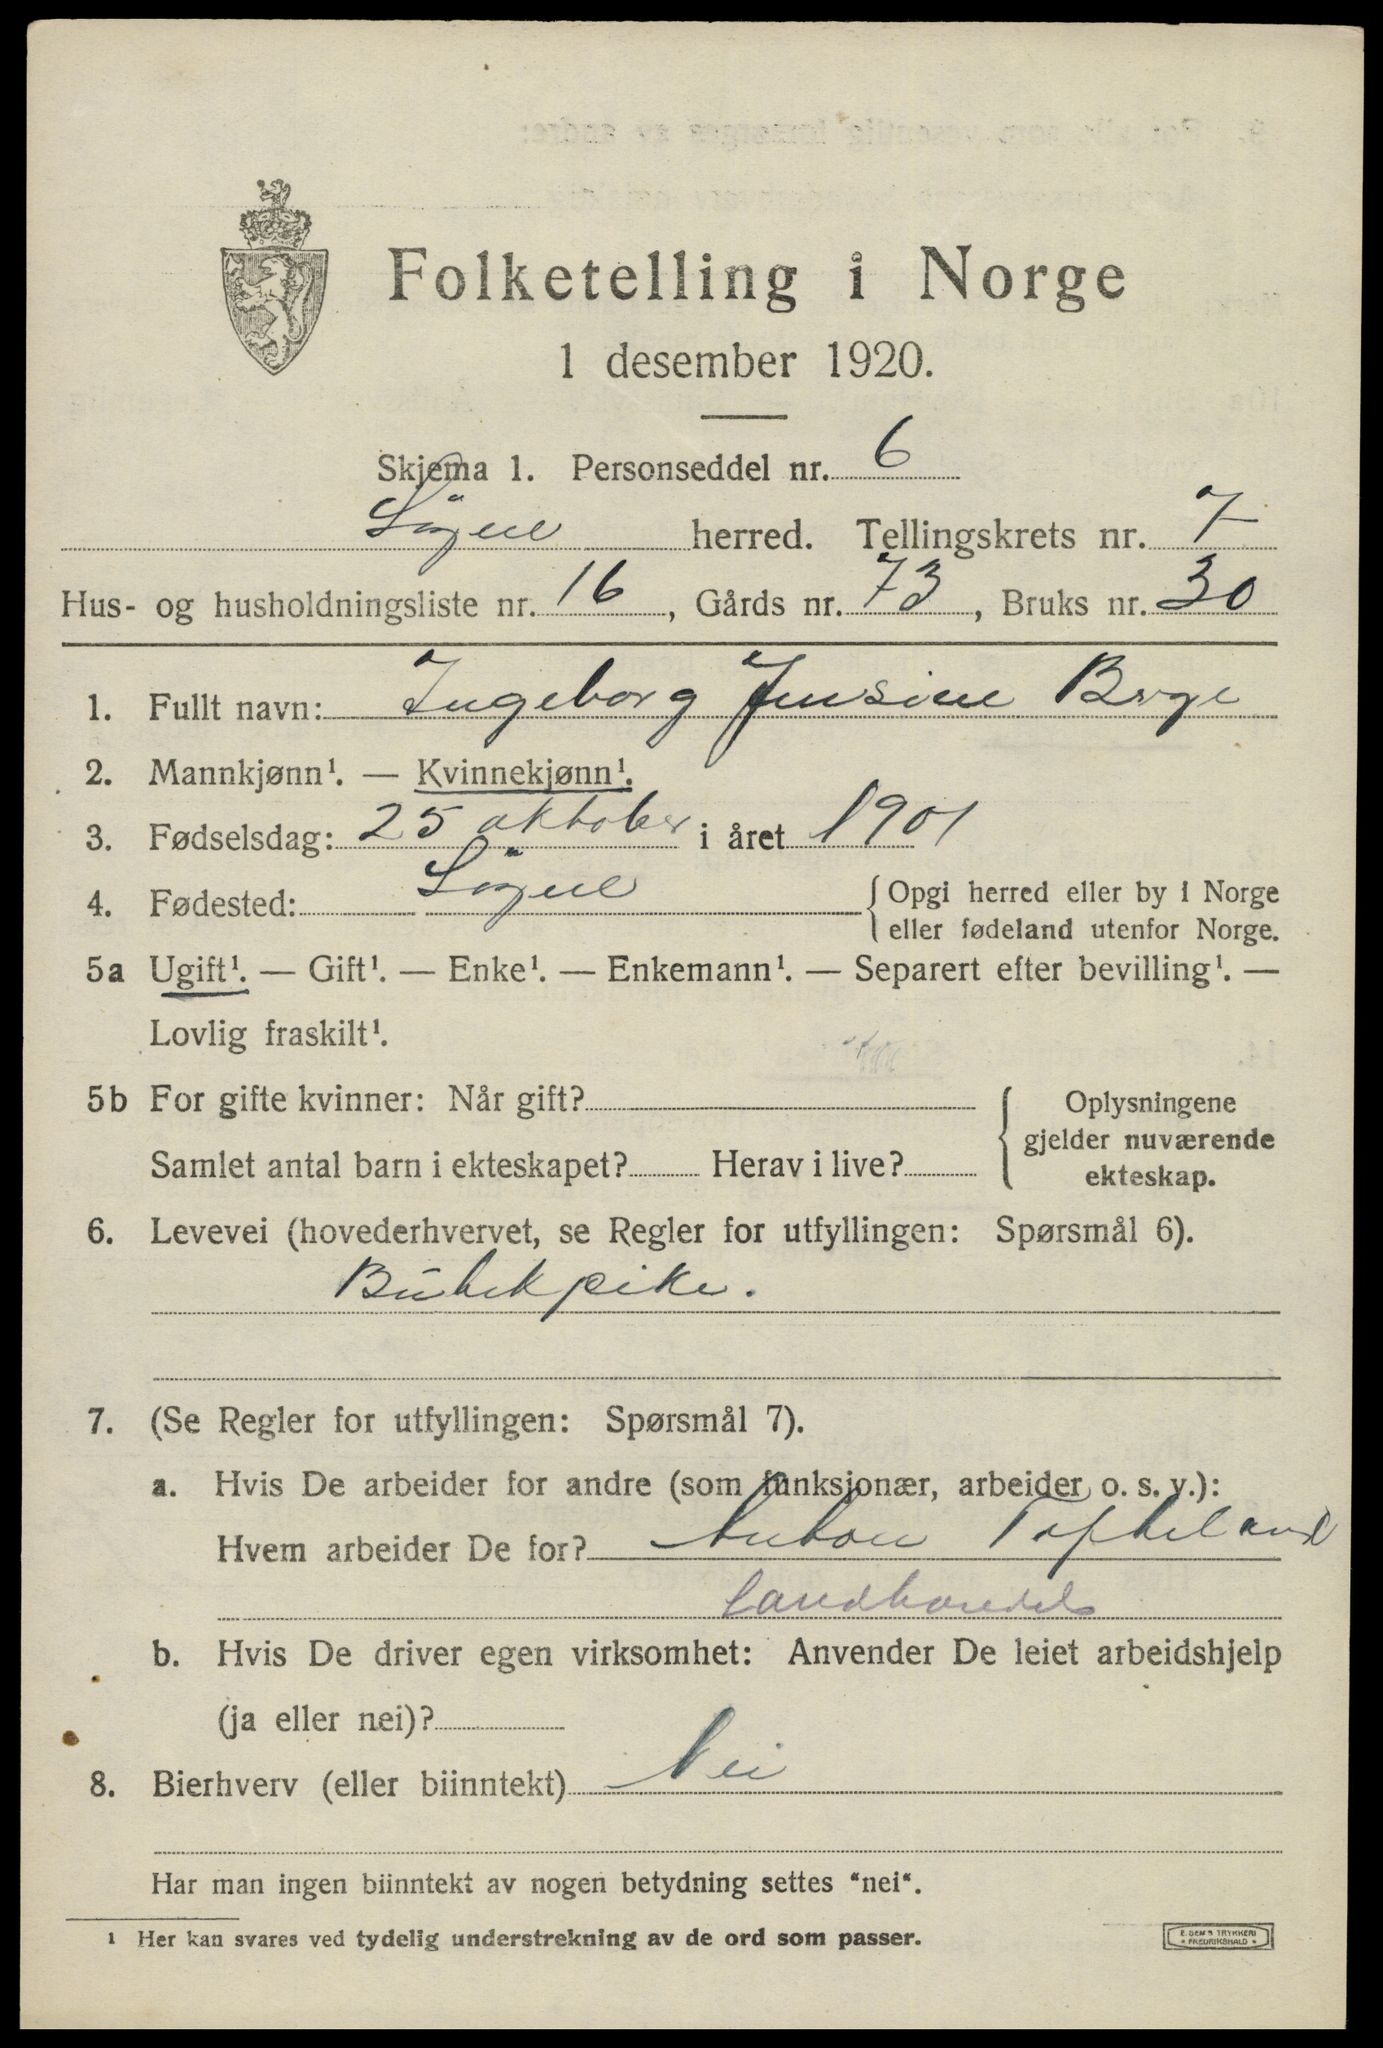 Folketelling i Norge
1 desember 1920.
Skjema 1. Personseddel nr. 6
Søgne herred. Tellingskrets nr. 7
Hus- og husholdningsliste nr. 16, Gårds nr. 73, Bruks nr. 30
1. Fullt navn: Ingeborg Jensine Berge
2. Mannkjønn¹. — Kvinnekjønn¹.
3. Fødselsdag: 25 oktober i året 1901
4. Fødested: Søgne { Opgi herred eller by i Norge
eller fødeland utenfor Norge.
5a Ugift¹. — Gift¹. — Enke¹. — Enkemann¹. — Separert efter bevilling¹. —
Lovlig fraskilt¹.
5b For gifte kvinner: Når gift?
Samlet antal barn i ekteskapet? Herav i live?
{ Oplysningene
gjelder nuværende
ekteskap.
6. Levevei (hovederhvervet, se Regler for utfyllingen: Spørsmål 6).
Butikpike.
7. (Se Regler for utfyllingen: Spørsmål 7).
a. Hvis De arbeider for andre (som funksjonær, arbeider o. s. v.):
Hvem arbeider De for? Anton Tofteland
Landhandels
b. Hvis De driver egen virksomhet: Anvender De leiet arbeidshjelp
(ja eller nei)?
8. Bierhverv (eller biinntekt) Nei
Har man ingen biinntekt av nogen betydning settes "nei".
1 Her kan svares ved tydelig understrekning av de ord som passer.
E. SEM'S TRYKKERI
• FREDRIKSHALD •